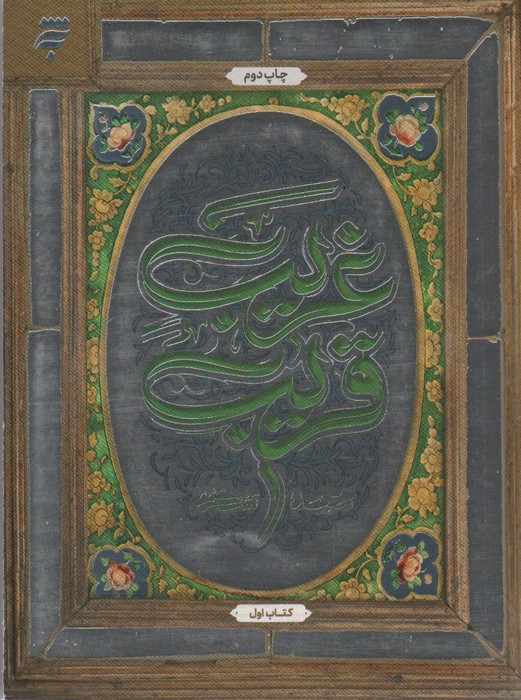 چاپ دوم
غریب
قریب
کتاب اول